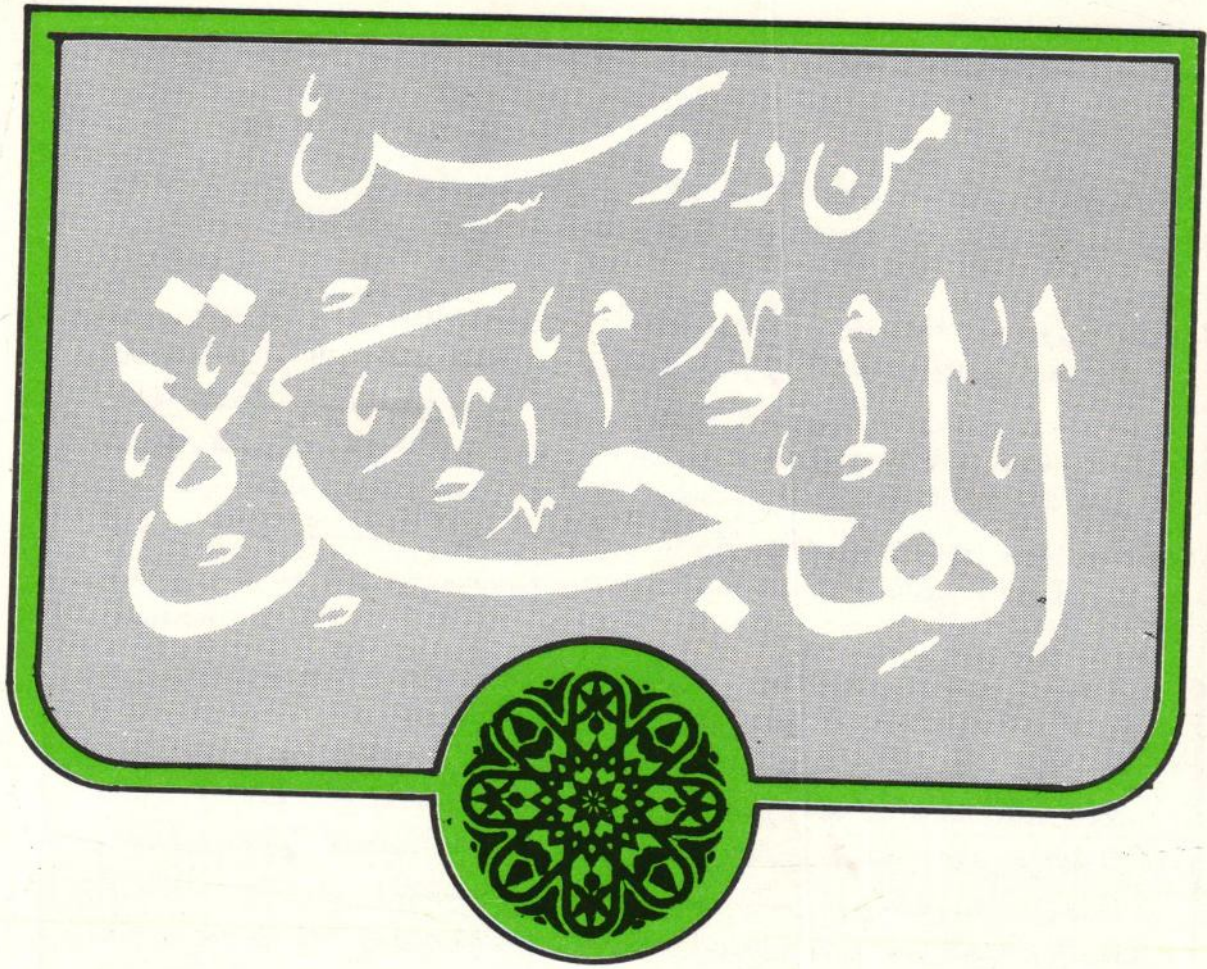 من دروسِ
الهِجرة